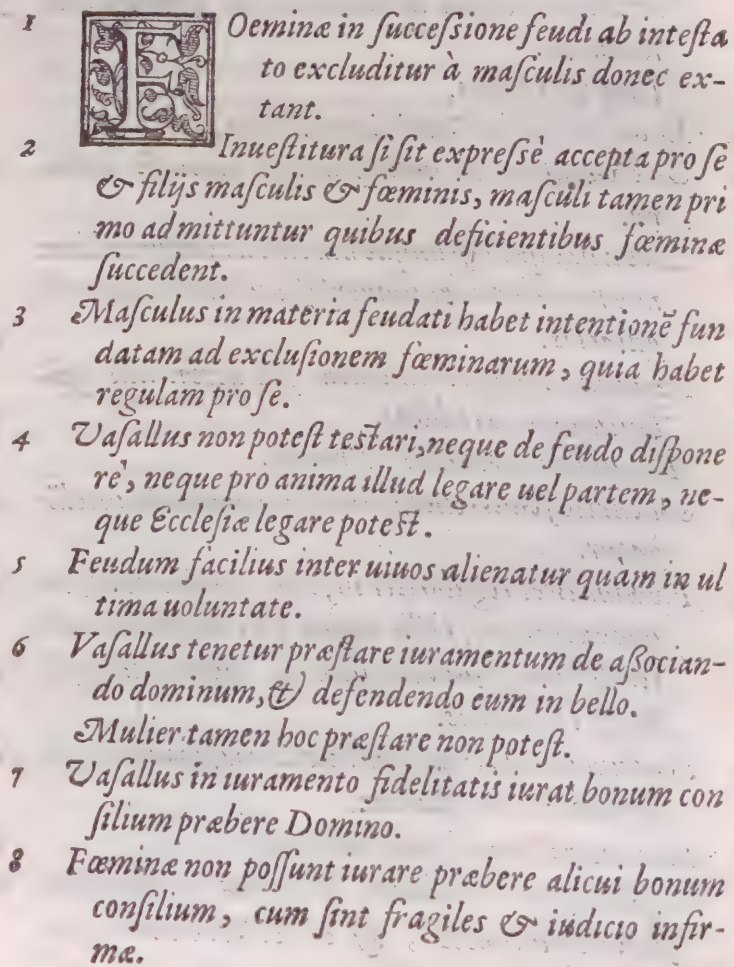 1 FOeminæ in ſucceſsione feudi ab inteſta
to excluditur à maſculis donec ex-
tant.
2 Inueſtitura ſi ſit expreſsè accepta pro ſe
& filijs maſculis & fœminis, maſculi tamen pri
mo admittuntur quibus deficientibus fœminæ
ſuccedent.
3 Maſculus in materia feudati habet intentionē fun
datam ad excluſionem fœminarum, quia habet
regulam pro ſe.
4 Vaſallus non poteſt teſtari, neque de feudo diſpone
re, neque pro anima illud legare uel partem, ne-
que Eccleſiæ legare poteſt.
5 Feudum facilius inter uiuos alienatur quàm in ul
tima uoluntate.
6 Vaſallus tenetur præſtare iuramentum de aſſocian-
do dominum, & defendendo eum in bello.
Mulier tamen hoc præſtare non poteſt.
7 Vaſallus in iuramento fidelitatis iurat bonum con
ſilium præbere Domino.
8 Fœminæ non poſſunt iurare præbere alicui bonum
conſilium, cum ſint fragiles & iudicio infir-
mæ.